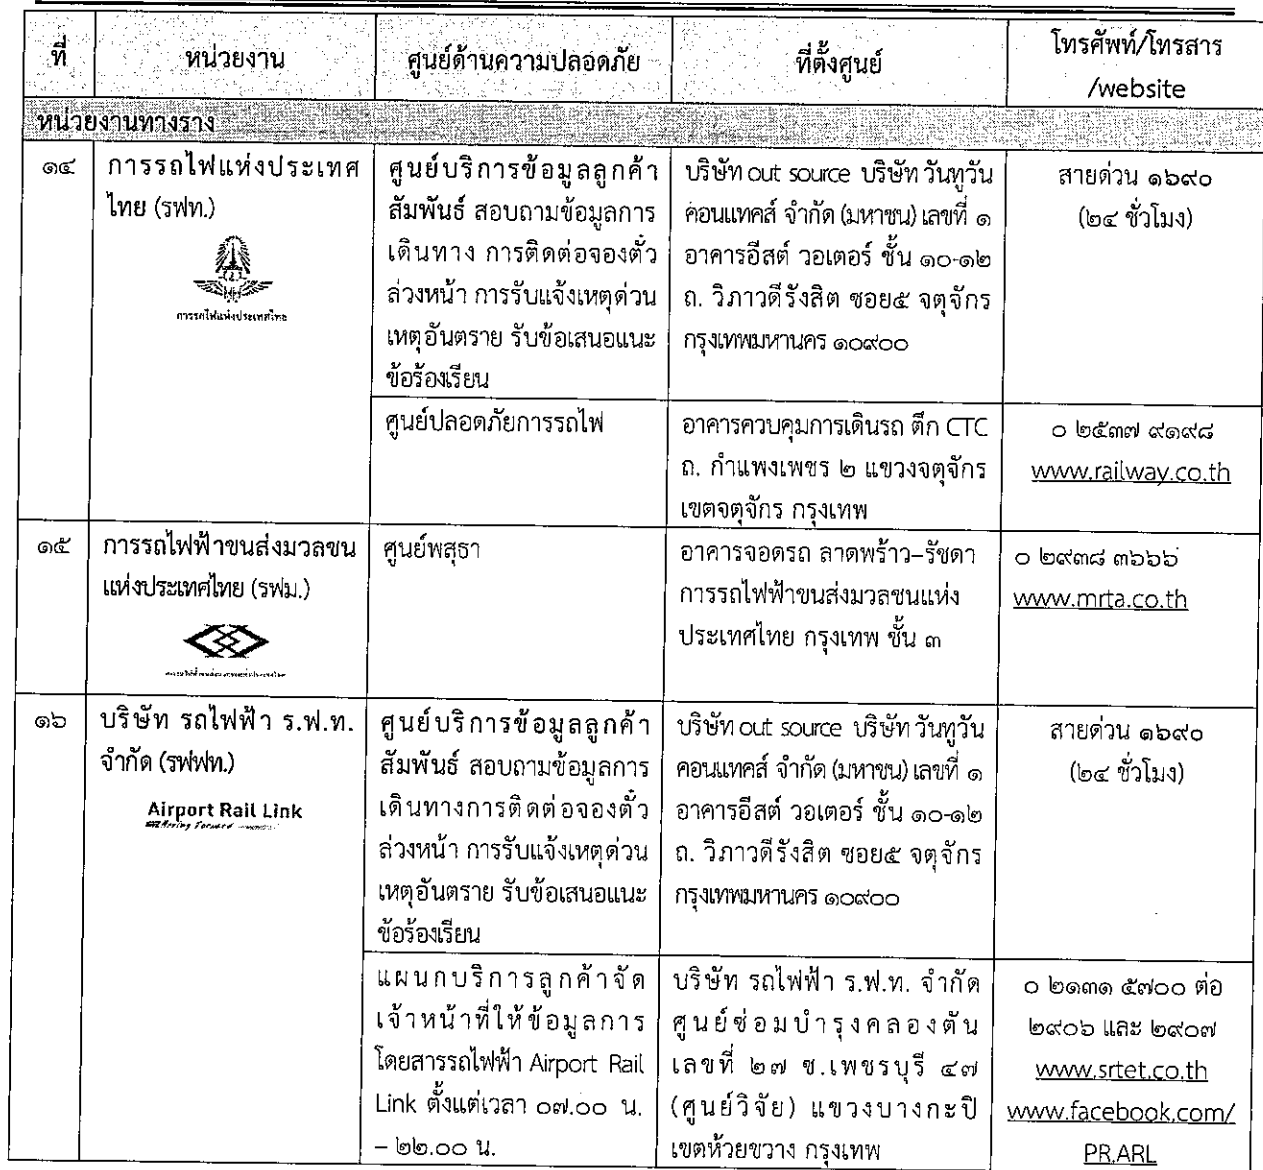 ที่ หน่วยงาน ศูนย์ด้านความปลอดภัย ที่ตั้งศูนย์ โทรศัพท์/โทรสาร
/website
หน่วยงานทางราง
๑๔
การรถไฟแห่งประเทศ
ไทย (รฟท.)
การรถไฟแห่งประเทศไทย
ศูนย์บริการข้อมูลลูกค้า
สัมพันธ์ สอบถามข้อมูลการ
เดินทาง การติดต่อจองตั๋ว
ล่วงหน้า การรับแจ้งเหตุด่วน
เหตุอันตราย รับข้อเสนอแนะ
ข้อร้องเรียน
บริษัท out source บริษัท วันทูวัน
คอนแทคส์ จำกัด (มหาชน) เลขที่ ๑
อาคารอีสต์ วอเตอร์ ชั้น ๑๐-๑๒
ถ. วิภาวดีรังสิต ซอย๕ จตุจักร
กรุงเทพมหานคร ๑๐๙๐๐
สายด่วน ๑๖๙๐
(๒๔ ชั่วโมง)
ศูนย์ปลอดภัยการรถไฟ
อาคารควบคุมการเดินรถ ตึก CTC
ถ. กำแพงเพชร ๒ แขวงจตุจักร
เขตจตุจักร กรุงเทพ
๐ ๒๕๓๗ ๙๑๙๘
www.railway.co.th
๑๕
การรถไฟฟ้าขนส่งมวลชน
แห่งประเทศไทย (รฟม.)
ศูนย์พสุธา
อาคารจอดรถ ลาดพร้าว–รัชดา
การรถไฟฟ้าขนส่งมวลชนแห่ง
ประเทศไทย กรุงเทพ ชั้น ๓
๐ ๒๙๓๘ ๓๖๖๖
www.mrta.co.th
๑๖
บริษัท รถไฟฟ้า ร.ฟ.ท.
จำกัด (รฟฟท.)
Airport Rail Link
Moving Forward
ศูนย์บริการข้อมูลลูกค้า
สัมพันธ์ สอบถามข้อมูลการ
เดินทางการติดต่อจองตั๋ว
ล่วงหน้า การรับแจ้งเหตุด่วน
เหตุอันตราย รับข้อเสนอแนะ
ข้อร้องเรียน
บริษัท out source บริษัท วันทูวัน
คอนแทคส์ จำกัด (มหาชน) เลขที่ ๑
อาคารอีสต์ วอเตอร์ ชั้น ๑๐-๑๒
ถ. วิภาวดีรังสิต ซอย๕ จตุจักร
กรุงเทพมหานคร ๑๐๙๐๐
สายด่วน ๑๖๙๐
(๒๔ ชั่วโมง)
แผนกบริการลูกค้าจัด
เจ้าหน้าที่ให้ข้อมูลการ
โดยสารรถไฟฟ้า Airport Rail
Link ตั้งแต่เวลา ๐๗.๐๐ น.
– ๒๒.๐๐ น.
บริษัท รถไฟฟ้า ร.ฟ.ท. จำกัด
ศูนย์ซ่อมบำรุงคลองตัน
เลขที่ ๒๗ ซ.เพชรบุรี ๔๗
(ศูนย์วิจัย) แขวงบางกะปิ
เขตห้วยขวาง กรุงเทพ
๐ ๒๑๓๑ ๕๗๐๐ ต่อ
๒๙๐๖ และ ๒๙๐๗
www.srtet.co.th
www.facebook.com/
PR.ARL